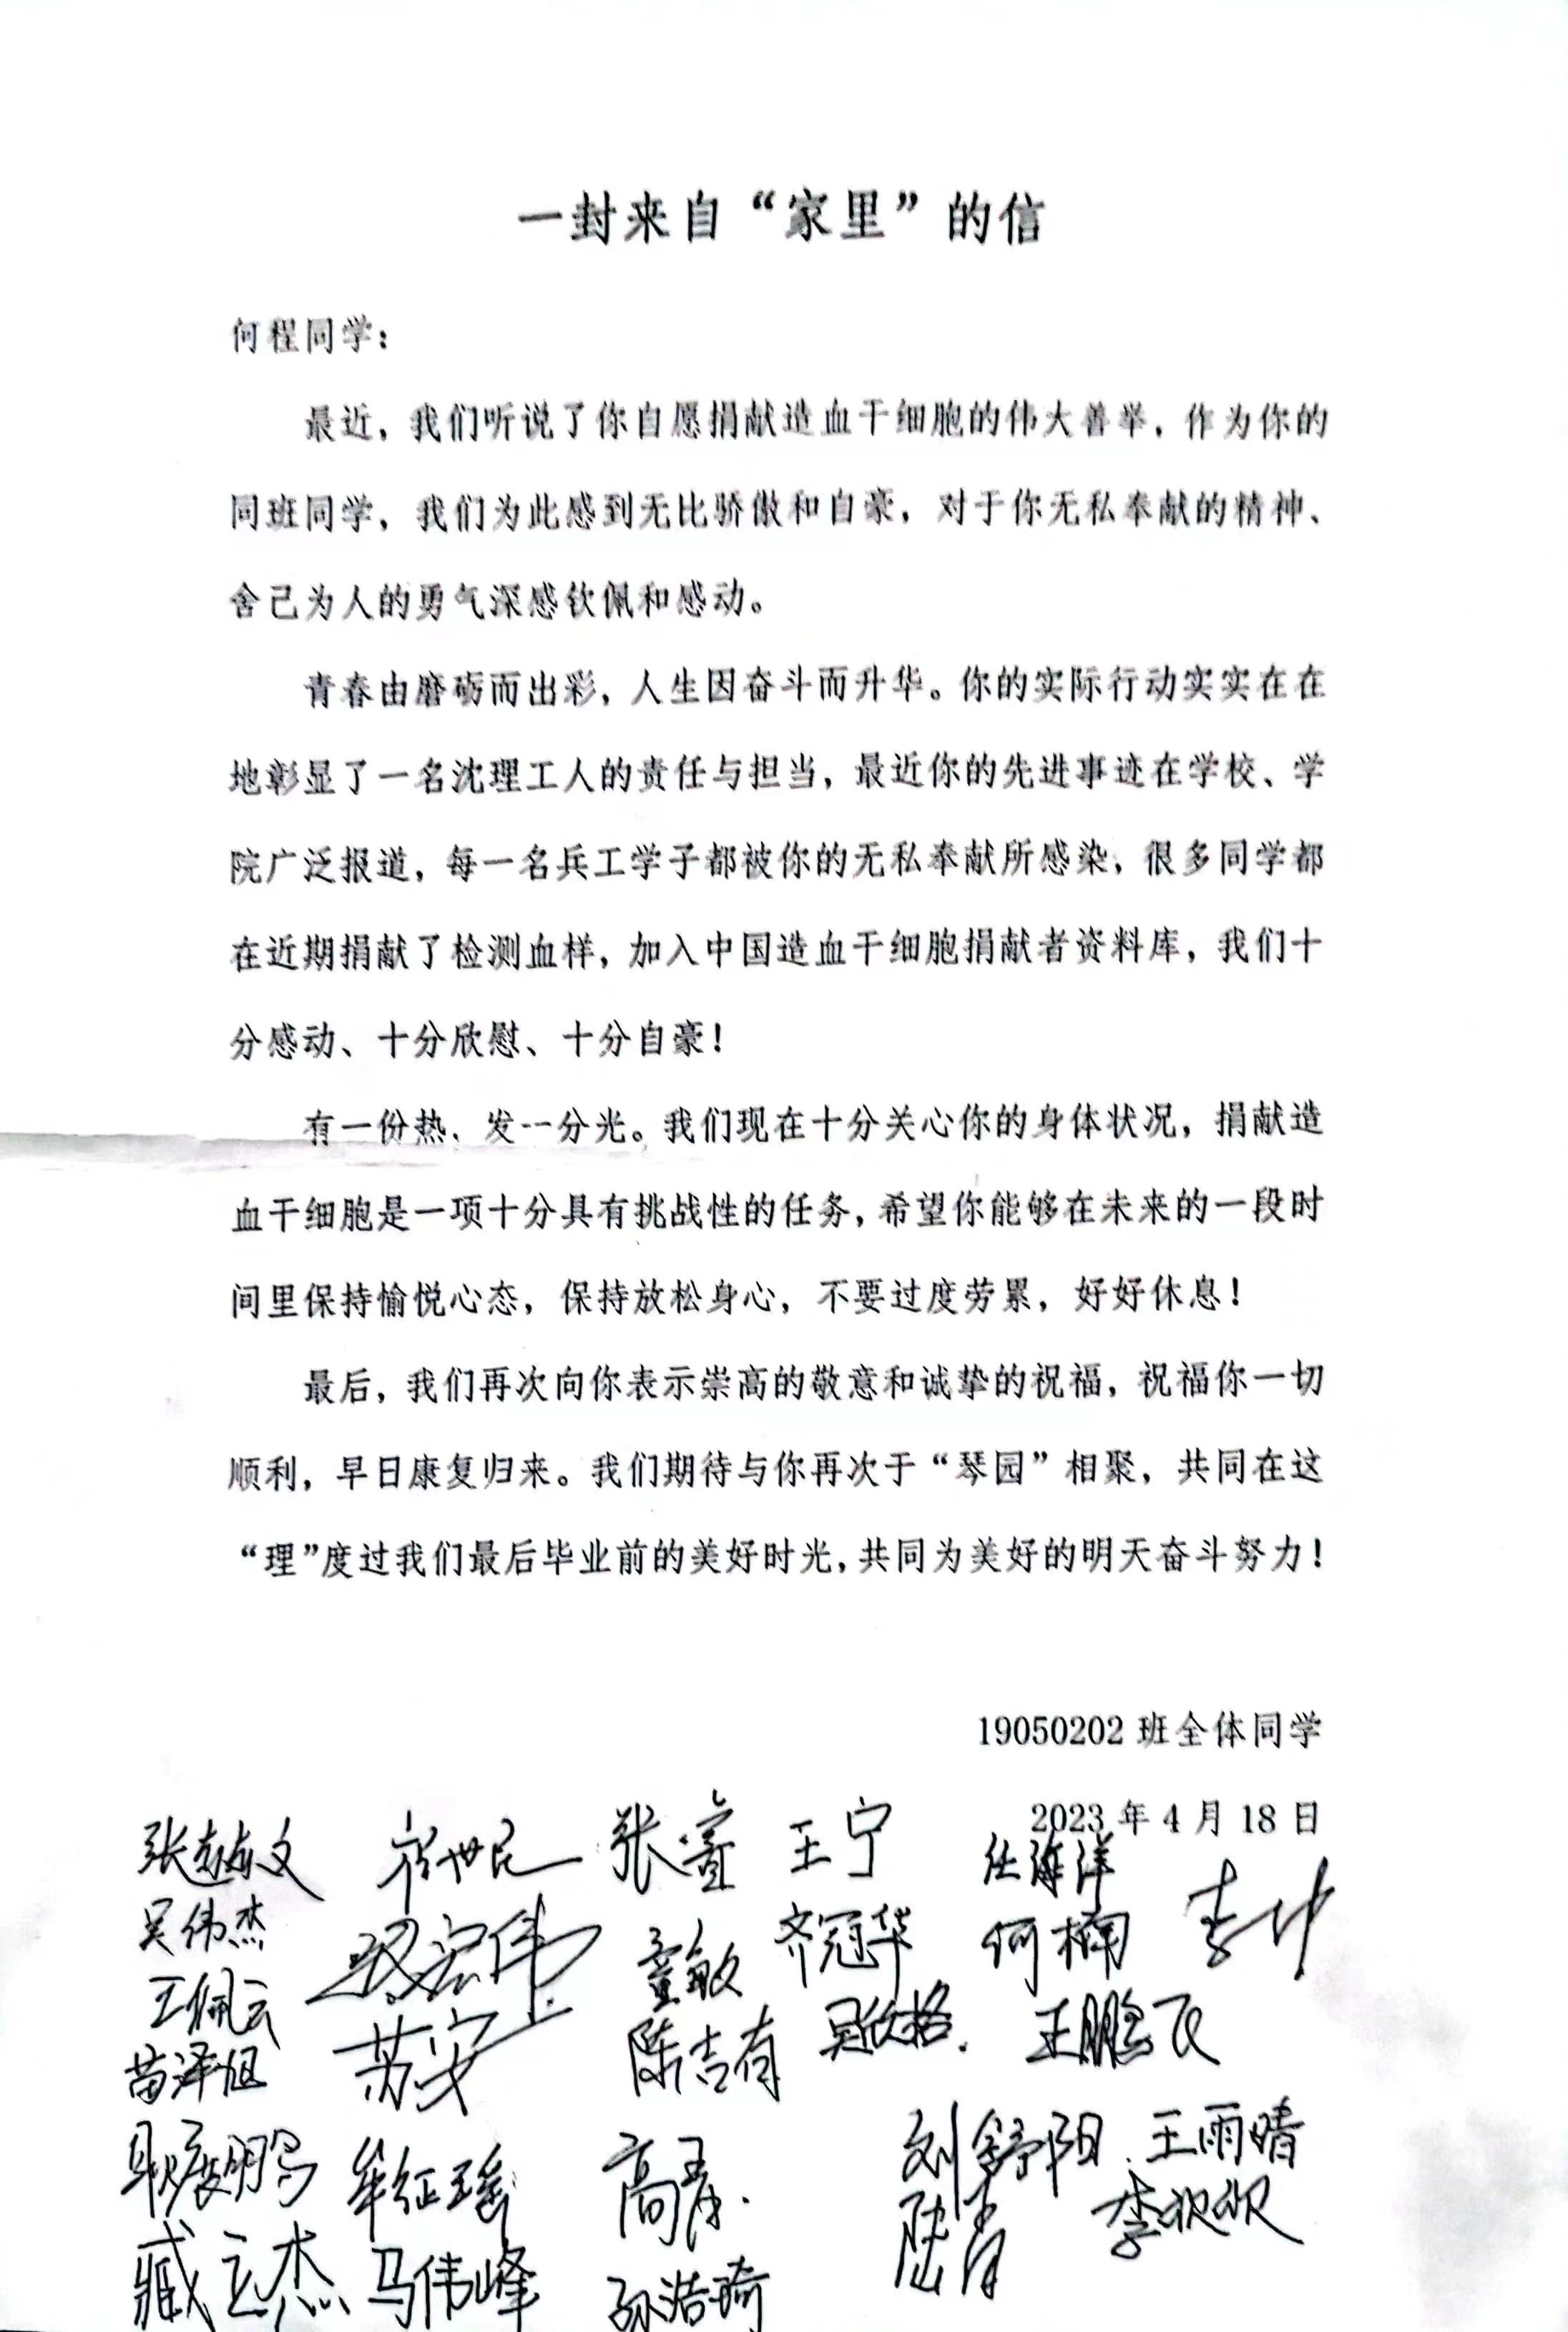 一封来自“家里”的信
何程同学：
最近，我们听说了你自愿捐献造血干细胞的伟大善举，作为你的
同班同学，我们为此感到无比骄傲和自豪，对于你无私奉献的精神、
舍己为人的勇气深感钦佩和感动。
青春由磨砺而出彩，人生因奋斗而升华。你的实际行动实实在在
地彰显了一名沈理工人的责任与担当，最近你的先进事迹在学校、学
院广泛报道，每一名兵工学子都被你的无私奉献所感染，很多同学都
在近期捐献了检测血样，加入中国造血干细胞捐献者资料库，我们十
分感动、十分欣慰、十分自豪！
有一份热，发一分光。我们现在十分关心你的身体状况，捐献造
血干细胞是一项十分具有挑战性的任务，希望你能够在未来的一段时
间里保持愉悦心态，保持放松身心，不要过度劳累，好好休息！
最后，我们再次向你表示崇高的敬意和诚挚的祝福，祝福你一切
顺利，早日康复归来。我们期待与你再次于“琴园”相聚，共同在这
“理”度过我们最后毕业前的美好时光，共同为美好的明天奋斗努力！
19050202 班全体同学
2023 年 4 月 18 日
张赫文 张萱 王宁 任海洋
吴伟杰 童敏 齐冠华 何楠
王佩云 苏安 陈吉有 王鹏飞
苗泽旭
牟征瑶 刘舒阳 王雨晴
臧立杰 马伟峰 孙浩琦 陆青